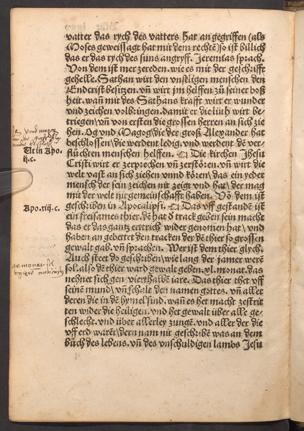 vatter das rych des vatters hat an gegriffen (als
Moses geweissagt hat mit dem rechtē) so ist billich
das er das rych des suns angryff. Jeremias sprach.
Von dem ist mer zereden. wie es mit der geschrifft
gehelle. Sathan wirt den vnsäligen menschen den
Endcrist besitzen. vñ wirt im helffen zů seiner boß
heit. wañ mit des Sathans krafft wirt er wunder
vnd zeichen volbringen. damit er die lüth wirt be-
triegen/ vñ von ersten die grossen herren an sich zie
hen. Og vnd Magog/ die der groß Alexander hat
beschlossen/ die werdent ledig. vnd werdent dē ver-
flůchten menschen helffen. Die kirchen Jhesu
Cristi wirt er zerprochen vñ zerstören. vñ wirt die
welt vast an sich ziehen vnnd kören/ das ein yeder
mensch der sein zeichen nit zeigt vnd hat/ der mag
mit der welt nit gemeinschafft haben. Vō dem ist
geschriben in Apocalipsi. Das vff gestandē ist
ein freisames thier. dē hat d' track geben sein macht
das er das gantz ertrich wider genomen hat/ vnd
haben an gebettet den tracken der dē thier so grossen
gewalt gab. vñ sprachen. Wer ist dem thier glych.
Auch steet do geschriben/ wie lang der jamer werē
sol. also dē thier ward gewalt geben. xl. monat. das
nehmet sich gen vierthalb iare. Das thier thet vff
seinē mund/ vñ schalt den namen gottes. vñ aller
deren die in dē hymel sind. wañ es het macht zestrit
ten wider die heiligen. vnd het gewalt über alle ge-
schlecht. vnd über allerley zunge. vnd aller der die
vff erd warē/ der nam nit geschribē was an dem
bůch des lebens. vñ des vnschuldigen lambs Jesu
Et in Apo
ij. c.
Apo. xiij. c.